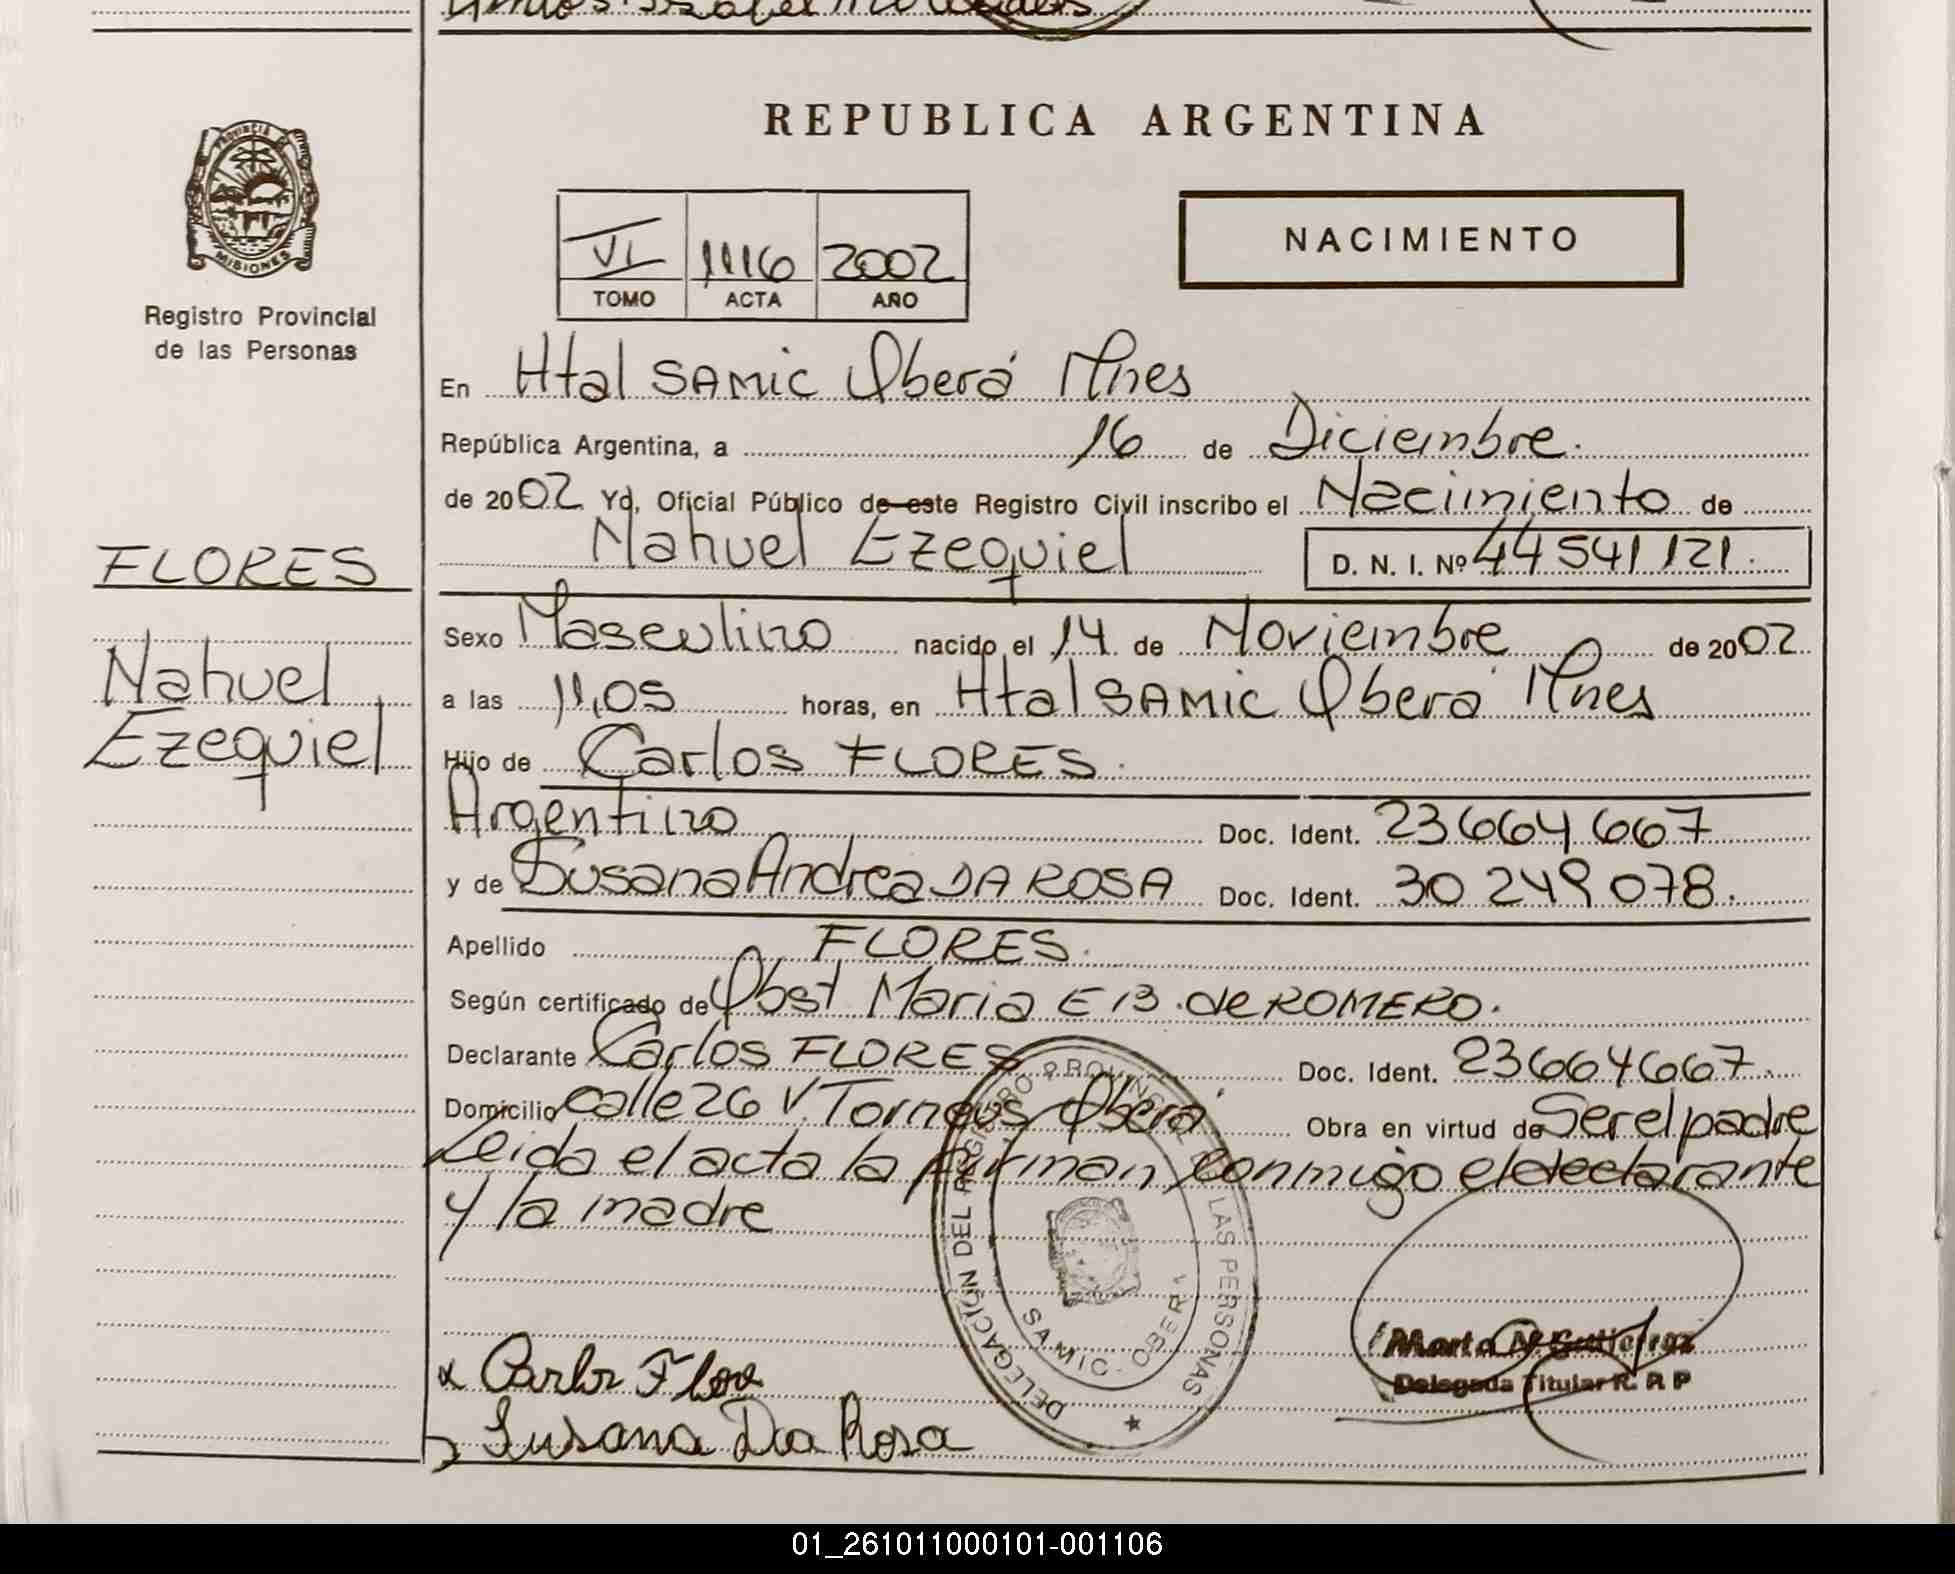 REPUBLICA ARGENTINA
PROVINCIA DE
MISIONES
Registro Provincial
de las Personas
NACIMIENTO
VI 1116 2002
TOMO ACTA AÑO
En Htal SAMIC Oberá Mnes
República Argentina, a 16 de Diciembre.
de 2002 Yo, Oficial Público de este Registro Civil inscribo el Nacimiento de
Nahuel Ezequiel D. N. I. Nº 44 541 121.
FLORES
Nahuel
Ezequiel
Sexo Masculino nacido el 14 de Noviembre de 2002
a las 11,05 horas, en Htal SAMIC Oberá Mnes
Hijo de Carlos FLORES.
Argentino Doc. Ident. 23 664 667
y de Susana Andrea DA ROSA Doc. Ident. 30 249 078.
Apellido FLORES.
Según certificado de Obst Maria E B. de ROMERO.
Declarante Carlos FLORES Doc. Ident. 23664667.
Domicilio calle 26 V. Torneus Oberá Obra en virtud de Ser el padre
Leida el acta la firman conmigo el declarante
y la madre
DELEGACIÓN DEL REGISTRO PROVINCIAL DE LAS PERSONAS
SAMIC - OBERA
Marta N. Gutierrez
Delegada Titular R. P. P
x Carlos Flore
Susana Da Rosa
01_261011000101-001106